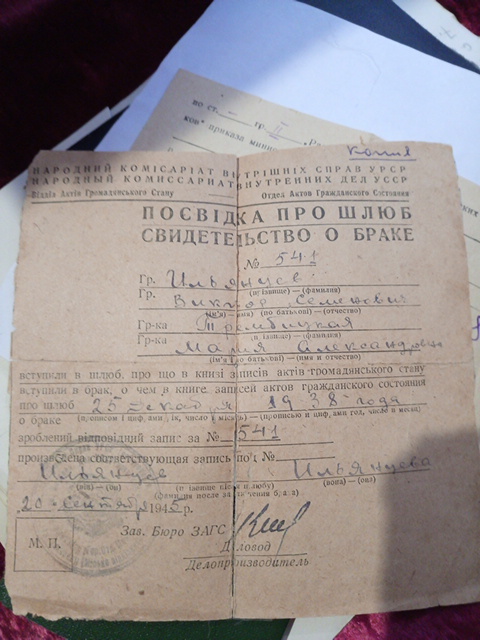 по ст. — гр. II
ков" приказа мини
Копия
НАРОДНИЙ КОМІСАРІАТ ВНУТРІШНІХ СПРАВ УРСР
НАРОДНЫЙ КОМИССАРИАТ ВНУТРЕННИХ ДЕЛ УССР
Відділ Актів Громадянського Стану Отдел Актов Гражданского Состояния
ПОСВІДКА ПРО ШЛЮБ
СВИДЕТЕЛЬСТВО О БРАКЕ
№ 541
Гр. Ильянцев
Гр. (прізвище) — (фамилия)
Виктор Семенович
(ім'я) — (имя) (по батькові) — (отчество)
Гр-ка Трембицкая
Гр-ка (прізвище) — (фамилия)
Мария Александровна
(ім'я та по батькові) — (имя и отчество)
вступили в шлюб, про що в книзі записів актів громадянського стану
вступили в брак, о чем в книге записей актов гражданского состояния
про шлюб 25 декабря 1938 года
о браке (прописом і циф. дні, рік, число і місяць) — (прописью и циф. дни год, число и месяц)
зроблений відповідний запис за № 541
произведена соответствующая запись под №
Ильянцев Ильянцева
(вона) — (он) (прізвище після шлюбу) (вона) — (она)
(фамилия после заключения брака)
20 сентября 1945 р.
М. П. Зав. Бюро ЗАГС
Діловод
Делопроизводитель